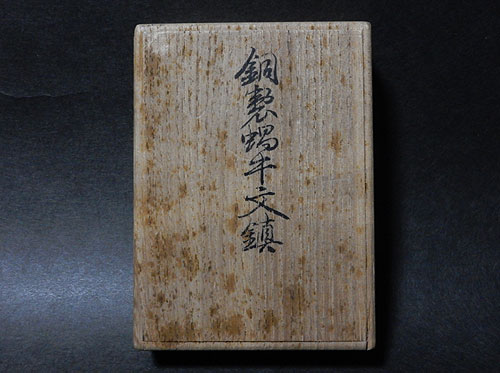 銅製蝸牛文鎮